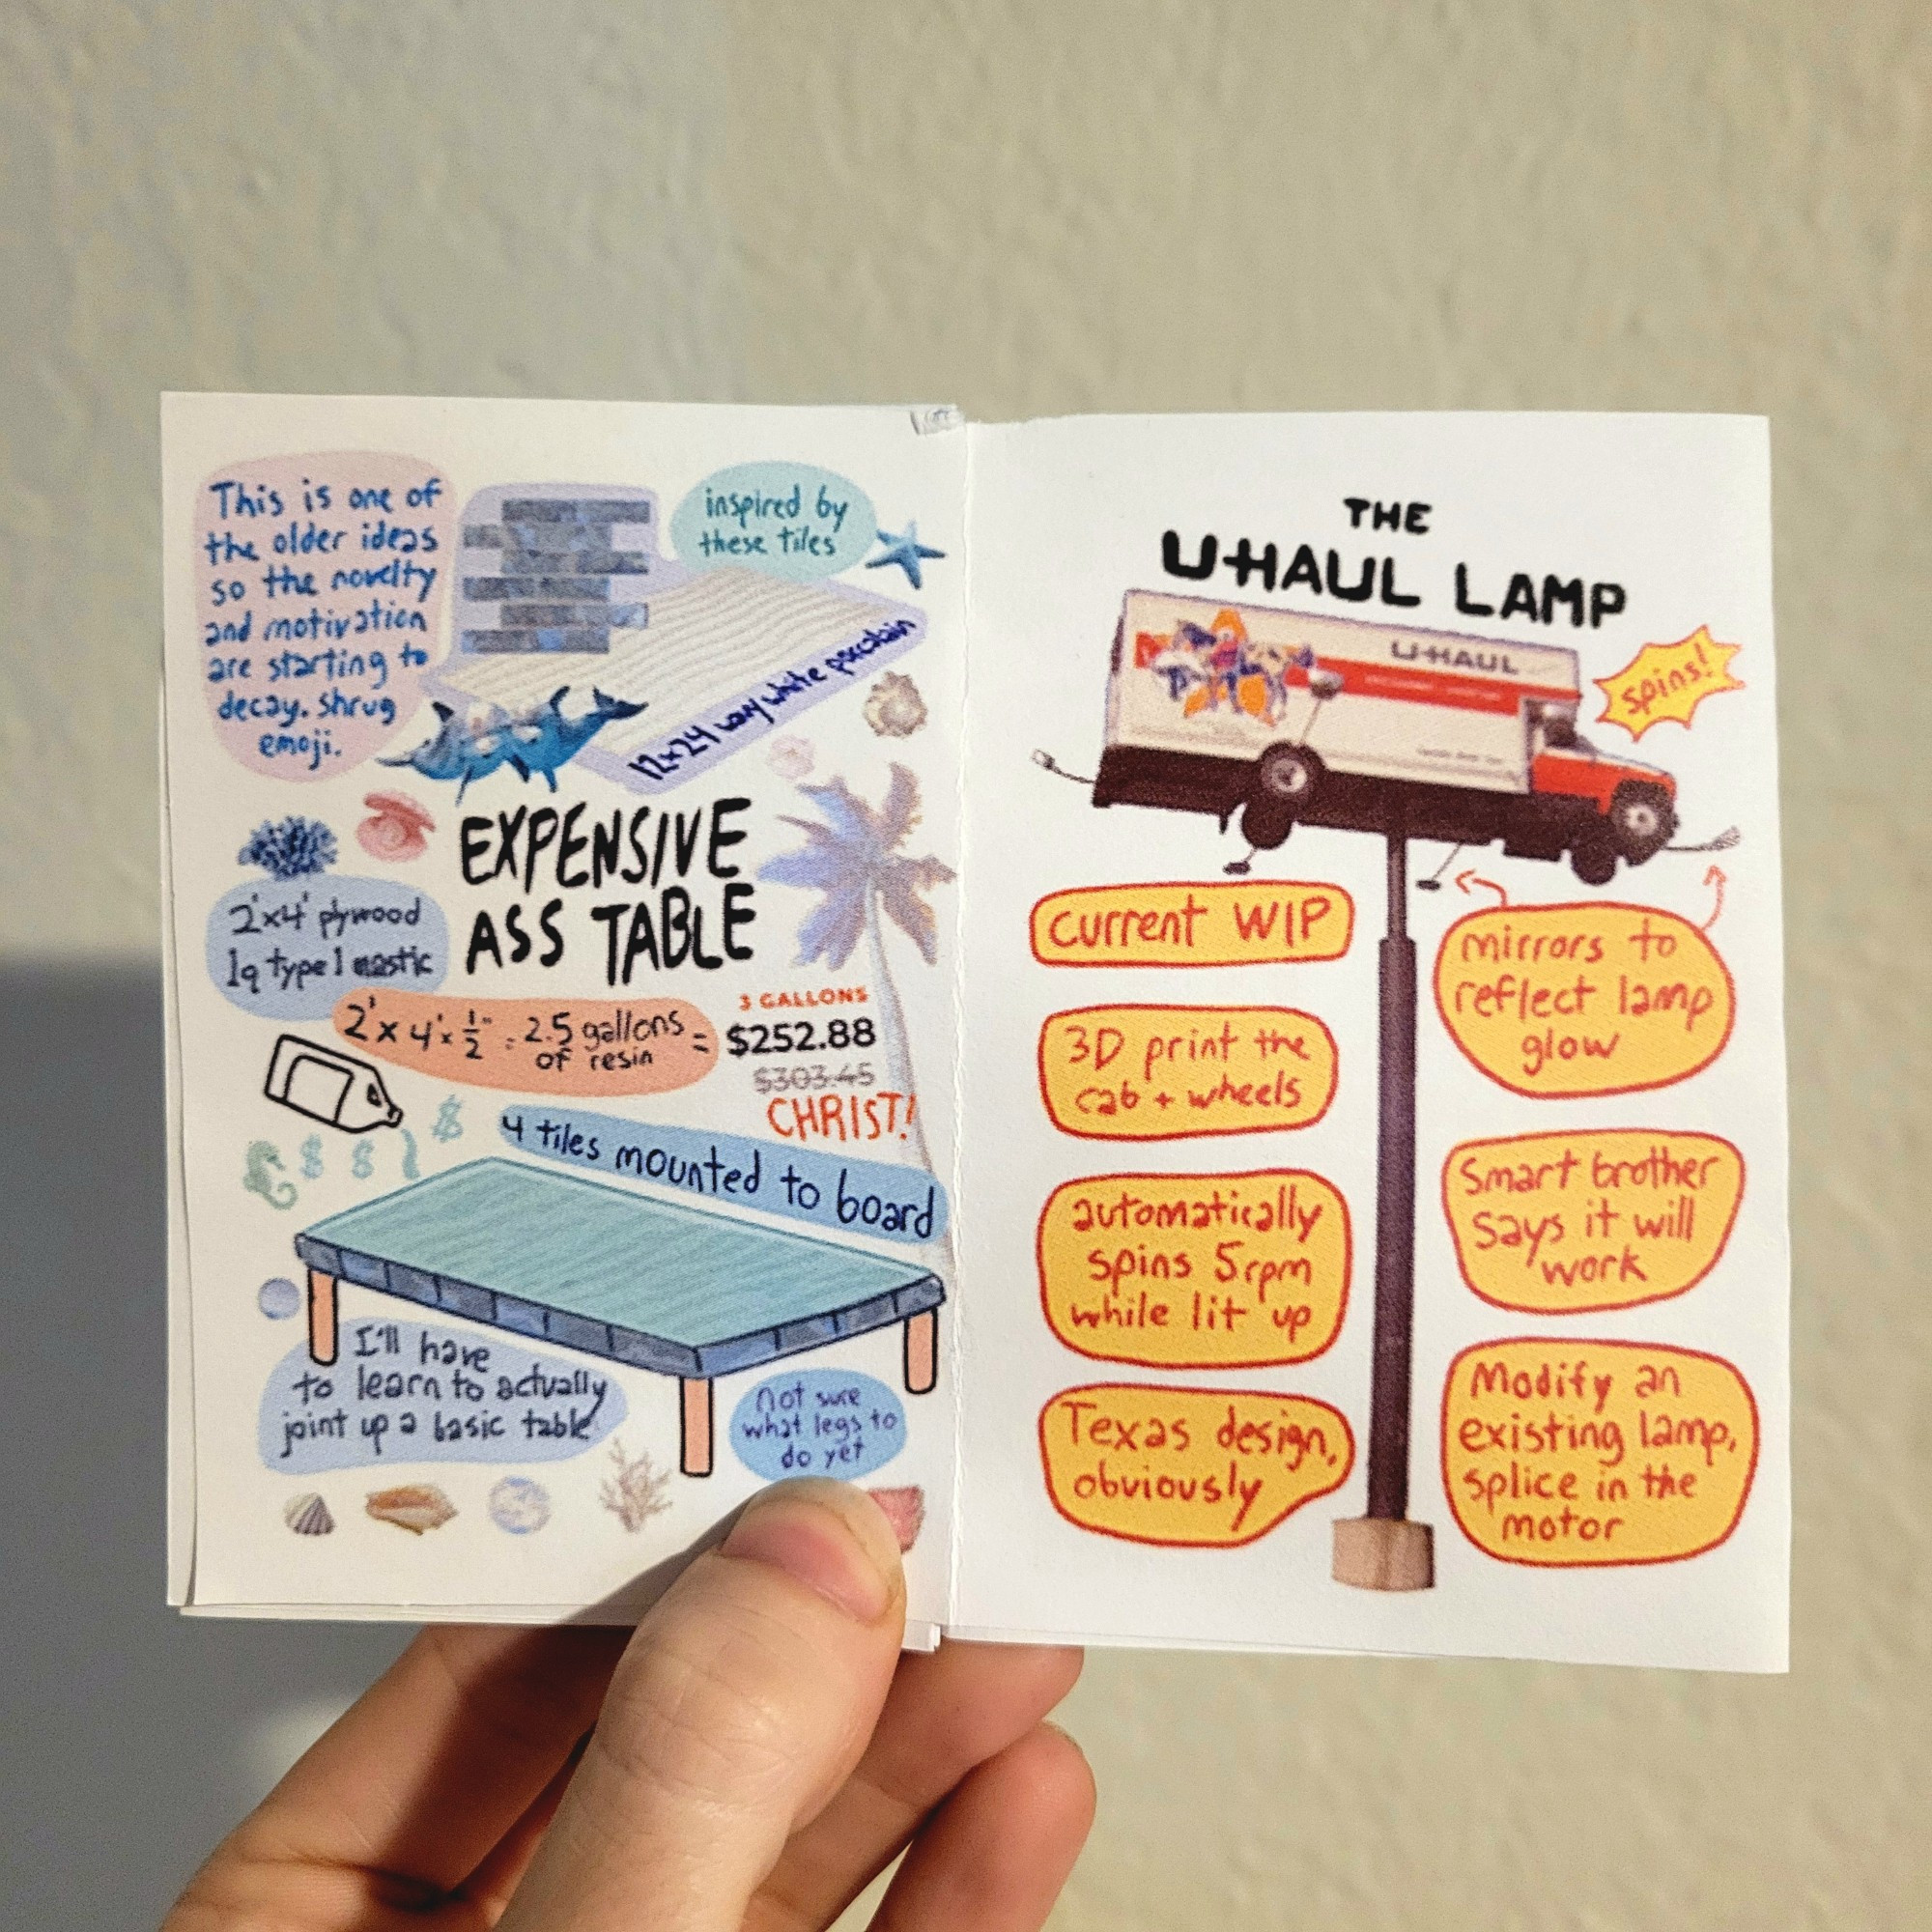 This is one of
the older ideas
so the novelty
and motivation
are starting to
decay. shrug
emoji.
inspired by
these tiles
12x24 wavy white porcelain
EXPENSIVE
ASS TABLE
2'x4' plywood
1q type 1 mastic
2' x 4' x 1/2" = 2.5 gallons
of resin
=
3 GALLONS
$252.88
$303.45
CHRIST!
$
$ $
4 tiles mounted to board
I'll have
to learn to actually
joint up a basic table
not sure
what legs to
do yet
THE
U-HAUL LAMP
U-HAUL
spins!
current WIP
mirrors to
reflect lamp
glow
3D print the
cab + wheels
Smart brother
says it will
work
automatically
spins 5rpm
while lit up
Texas design,
obviously
Modify an
existing lamp,
splice in the
motor